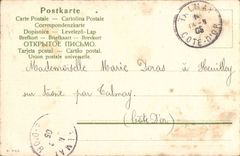 Postkarte
Carte postale - Cartolina Postale
Correspondenzkarte
Dopisnice - Levelező-Lap
Brefkort - Briefkaart - Brevkort
ОТКРЫТОЕ ПИСЬМО.
Tarjeta postal - Cartão postal.
Union postale universelle.
TALMAY
05
COTE-D'OR
Mademoiselle Marie Doras à Heuilley
sur Saône par Talmay
(Côte d'Or)